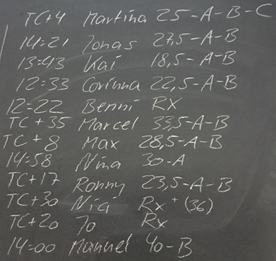 TC+4 Martina 25-A-B-C
14=21 Jonas 27,5-A-B
13=43 Kai 18,5-A-B
12=33 Corinna 22,5-A-B
12=22 Benni RX
TC+35 Marcel 33,5-A-B
TC+8 Max 28,5-A-B
14=58 Nina 30-A
TC+17 Ronny 23,5-A-B
TC+30 Nici Rx+ (36)
TC+20 Jo Rx
14=00 Manuel 40-B